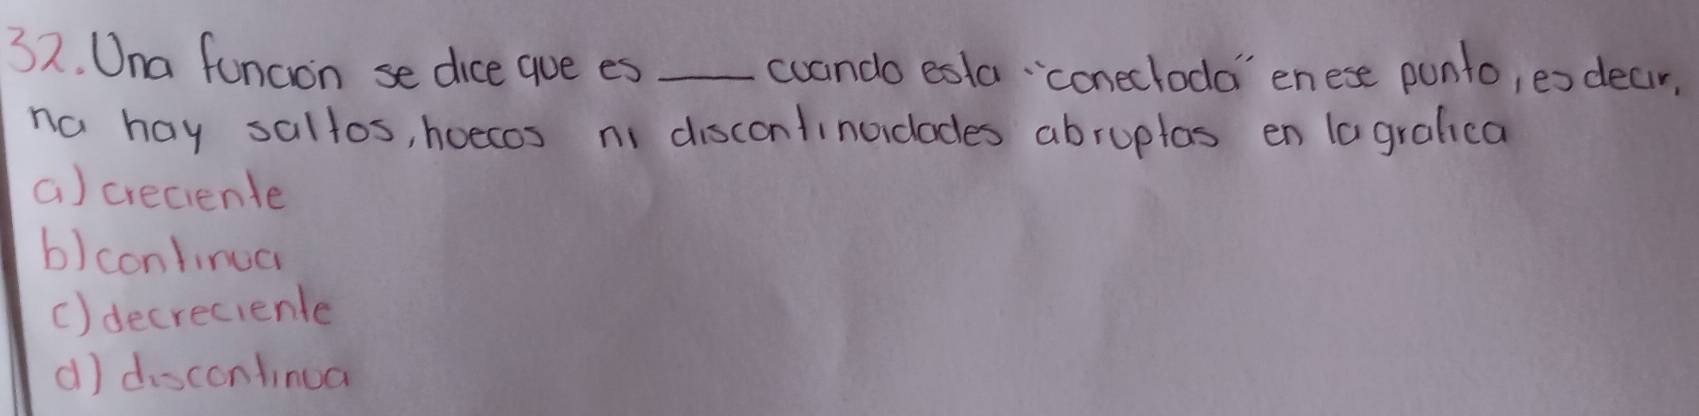 32. Una función se dice que es ___ cuando esta "conectada" en ese punto, es decir,
na hay saltos, huecos ni discontinuidades abruptas en la grafica
a) creciente
b) continua
c) decreciente
d) discontinua